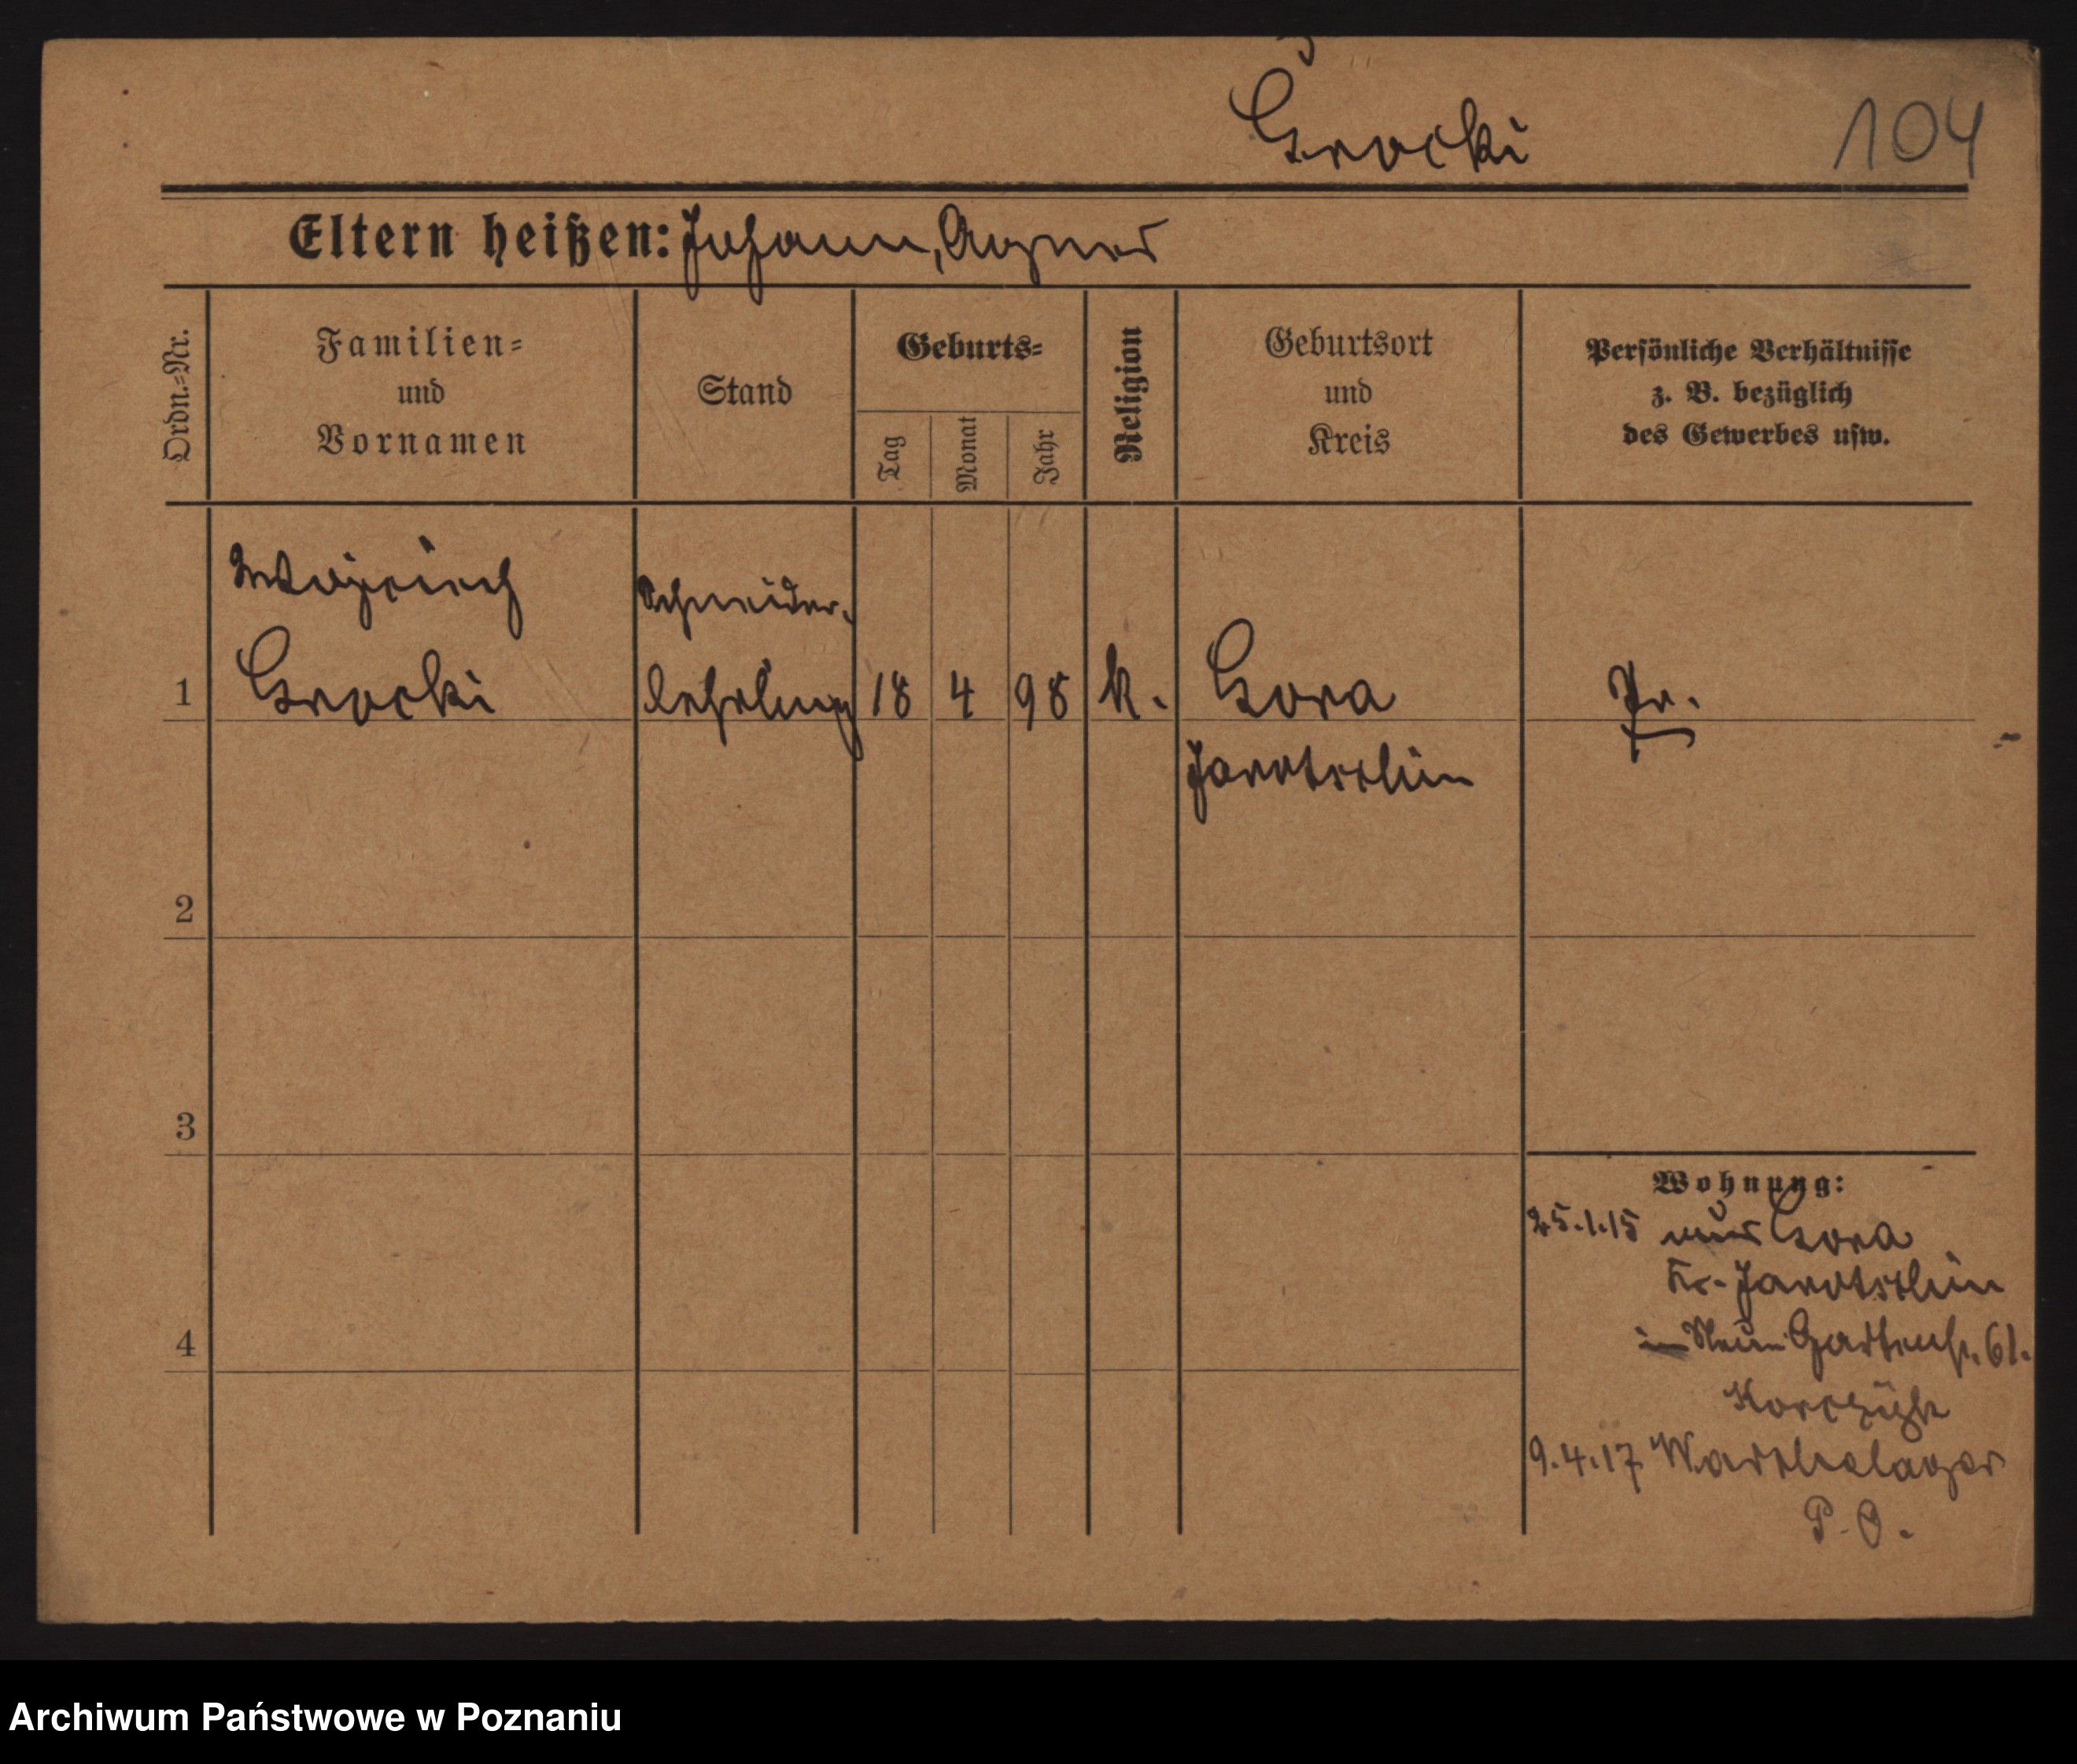 Grocki
104
Eltern heißen: Johann, Agnes
Ordn.=Nr.
Familien=
und
Vornamen
Stand
Geburts=
Tag
Monat
Jahr
Religion
Geburtsort
und
Kreis
Persönliche Verhältnisse
z. B. bezüglich
des Gewerbes usw.
Wojciech
Schneider-
1 Grocki lehrling 18 4 98 k. Gora Pr.
Jarotschin
2
3
4
Wohnung:
25.1.15 aus Gora
Kr. Jarotschin
in Neue Gartenstr. 61.
9.4.17 Warthelager
P. O.
Archiwum Państwowe w Poznaniu